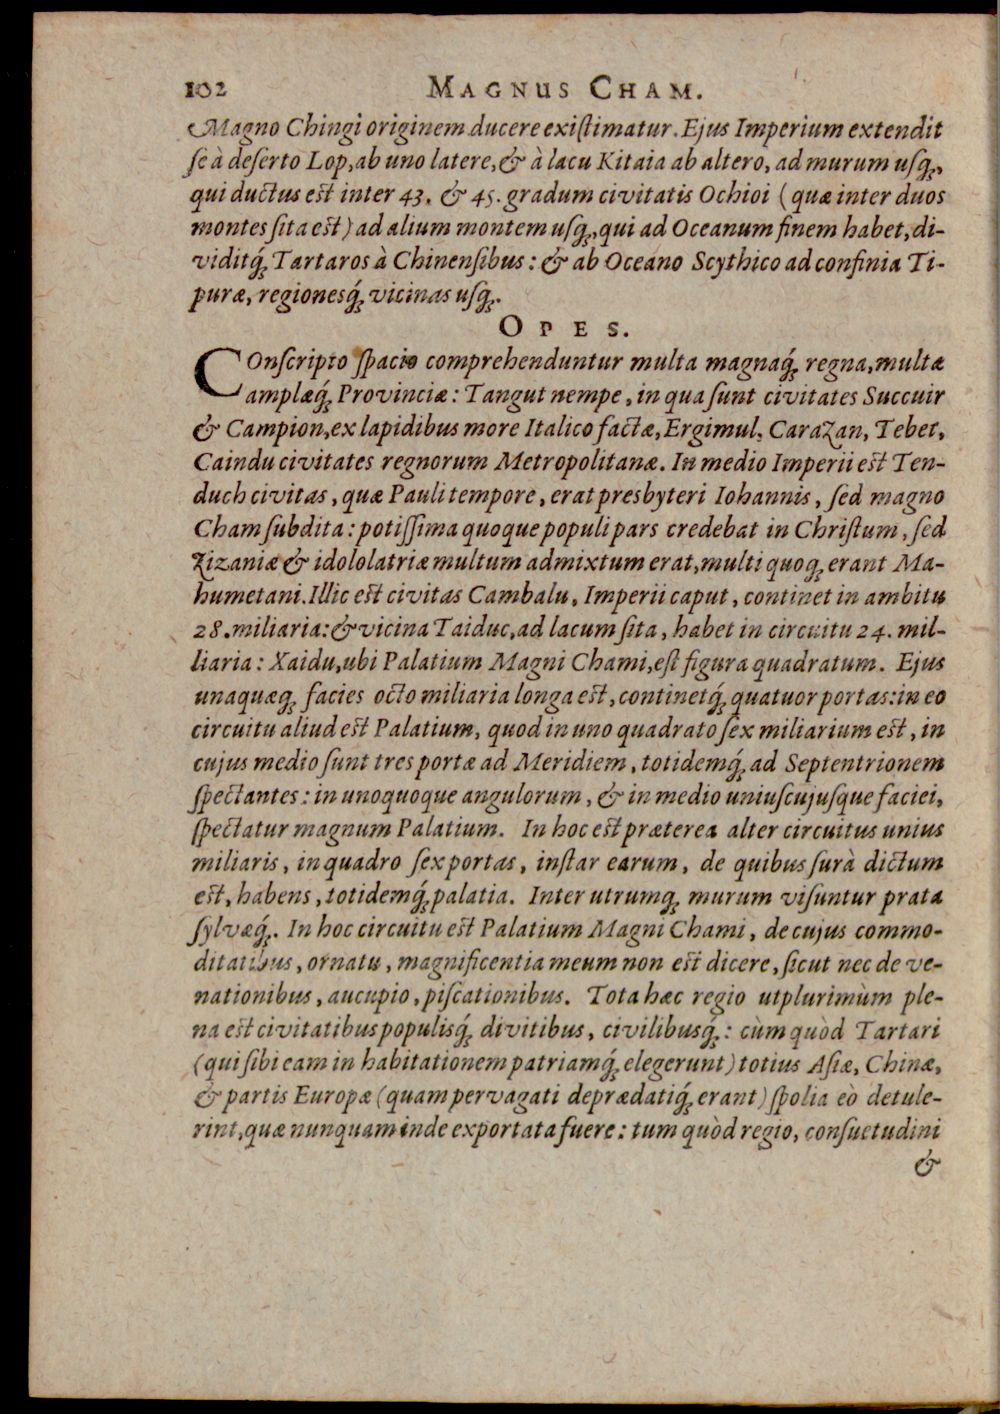 102 MAGNUS CHAM.
Magno Chingi originem ducere existimatur. Ejus Imperium extendit
se à deserto Lop, ab uno latere, & à lacu Kitaia ab altero, ad murum usq́;,
qui ductus est inter 43. & 45. gradum civitatis Ochioi (quæ inter duos
montes sita est) ad alium montem usq́;, qui ad Oceanum finem habet, di-
viditq́; Tartaros à Chinensibus: & ab Oceano Scythico ad confinia Ti-
puræ, regionesq́; vicinas usq́;.
OPES.
COnscripto spacio comprehenduntur multa magnaq́; regna, multæ
amplæq́; Provinciæ: Tangut nempe, in qua sunt civitates Succuir
& Campion, ex lapidibus more Italico factæ, Ergimul, Carazan, Tebet,
Caindu civitates regnorum Metropolitanæ. In medio Imperii est Ten-
duch civitas, quæ Pauli tempore, erat presbyteri Iohannis, sed magno
Cham subdita: potissima quoque populi pars credebat in Christum, sed
zizaniæ & idololatriæ multum admixtum erat, multi quoq; erant Ma-
humetani. Illic est civitas Cambalu, Imperii caput, continet in ambitu
28. miliaria: & vicina Taiduc, ad lacum sita, habet in circuitu 24. mil-
liaria: Xaidu, ubi Palatium Magni Chami, est figura quadratum. Ejus
unaquæq; facies octo miliaria longa est, continetq́; quatuor portas: in eo
circuitu aliud est Palatium, quod in uno quadrato sex miliarium est, in
cujus medio sunt tres portæ ad Meridiem, totidemq́; ad Septentrionem
spectantes: in unoquoque angulorum, & in medio uniuscujusque faciei,
spectatur magnum Palatium. In hoc est præterea alter circuitus unius
miliaris, in quadro sex portas, instar earum, de quibus surà dictum
est, habens, totidemq́; palatia. Inter utrumq; murum visuntur prata
sylvæq́;. In hoc circuitu est Palatium Magni Chami, de cujus commo-
ditatibus, ornatu, magnificentia meum non est dicere, sicut nec de ve-
nationibus, aucupio, piscationibus. Tota hæc regio utplurimùm ple-
na est civitatibus populisq́; divitibus, civilibusq́;: cùm quòd Tartari
(qui sibi eam in habitationem patriamq́; elegerunt) totius Asiæ, Chinæ,
& partis Europæ (quam pervagati deprædatiq́; erant) spolia eò detule-
rint, quæ nunquam inde exportata fuere: tum quòd regio, consuetudini
&